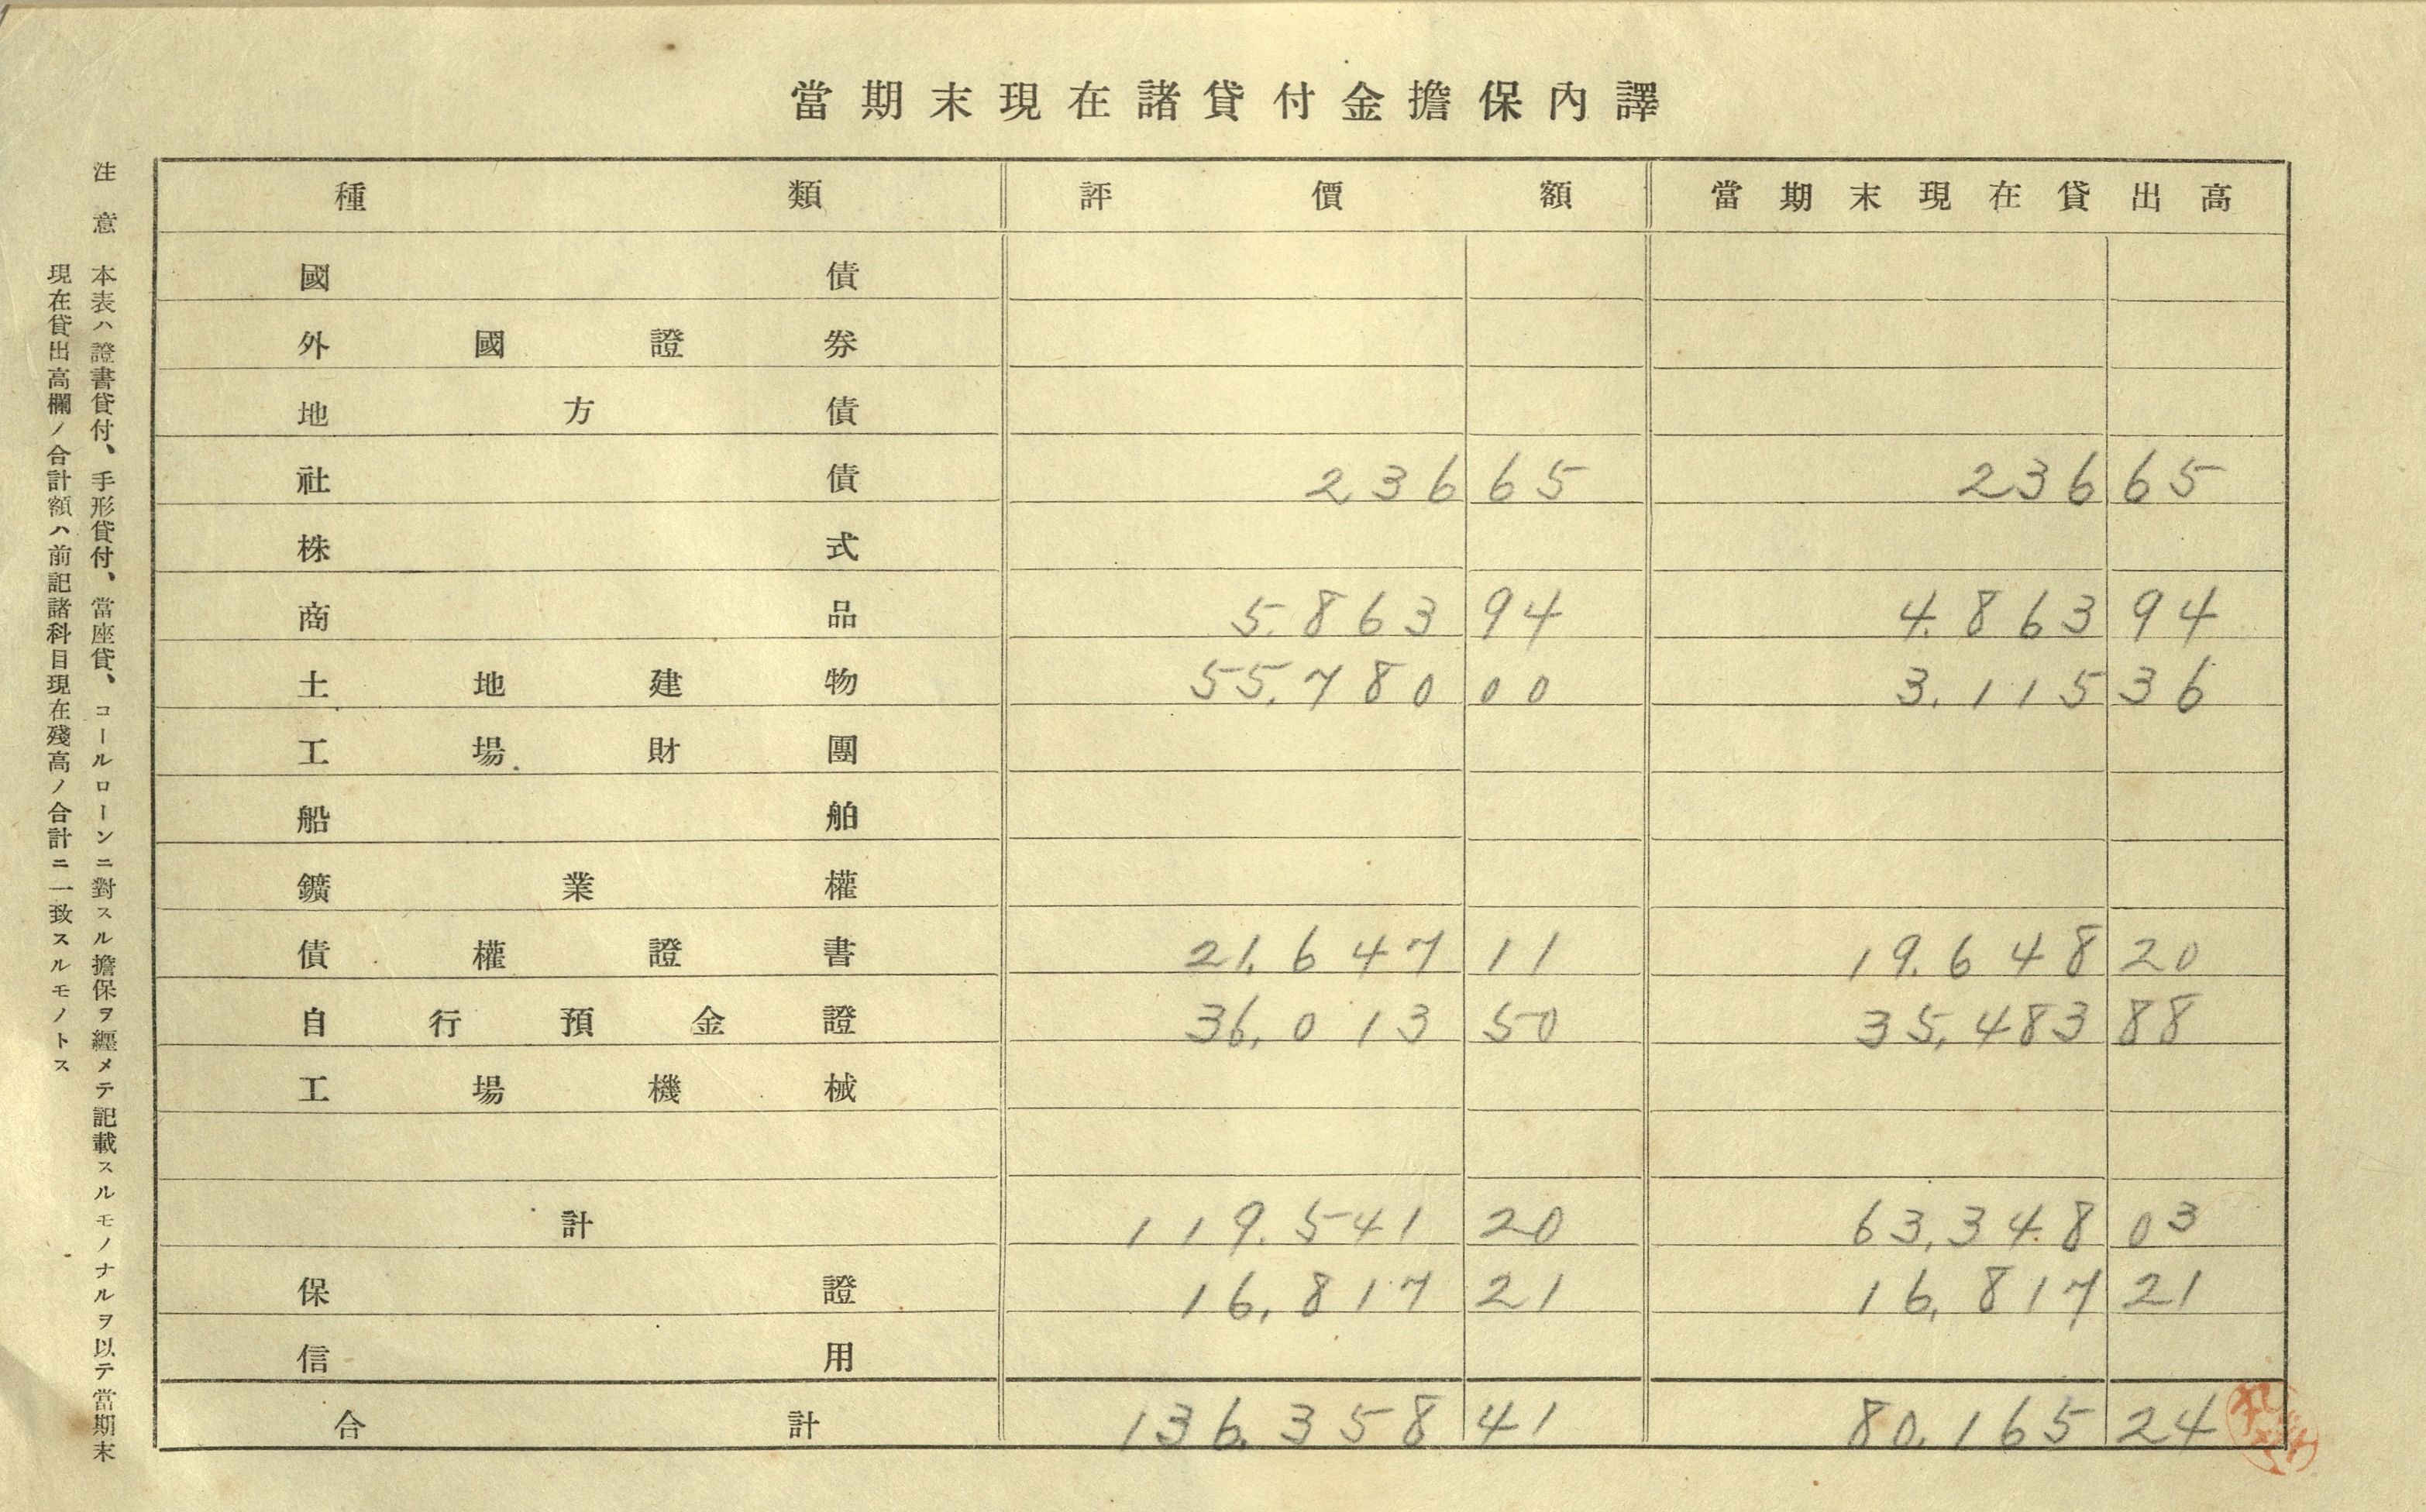 當期末現在諸貸付金擔保內譯
種類 評價額 當期末現在貸出高
國債
外國證券
地方債
社債 236 65 236 65
株式
商品 5.863 94 4.863 94
土地建物 55.780 00 3.115 36
工場財團
船舶
鑛業權
債權證書 21.647 11 19.648 20
自行預金證 36,013 50 35,483 88
工場機械
計 119.541 20 63,348 03
保證 16,817 21 16,817 21
信用
合計 136.358 41 80.165 24
注意 本表ハ證書貸付、手形貸付、當座貸、コールローンニ對スル擔保ヲ纒メテ記載スルモノナルヲ以テ當期末
現在貸出高欄ノ合計額ハ前記諸科目現在殘高ノ合計ニ一致スルモノトス